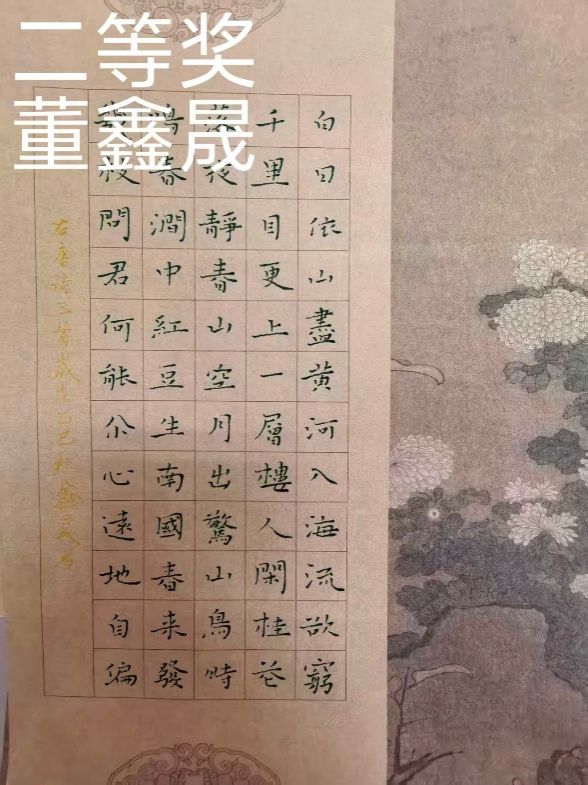 二等奖
董鑫晟
白日依山盡黄河入海流欲窮
千里目更上一層樓人閑桂花
落夜靜春山空月出驚山鳥時
鳴春澗中紅豆生南國春来發
幾枝問君何能尒心遠地自偏
右唐诗三首歲巳鑫晟